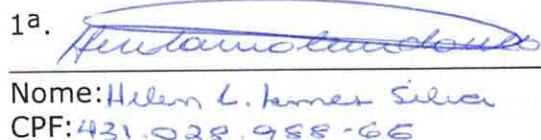 1ª.
Nome: Helen L. Silva
CPF: 431.028.988-66